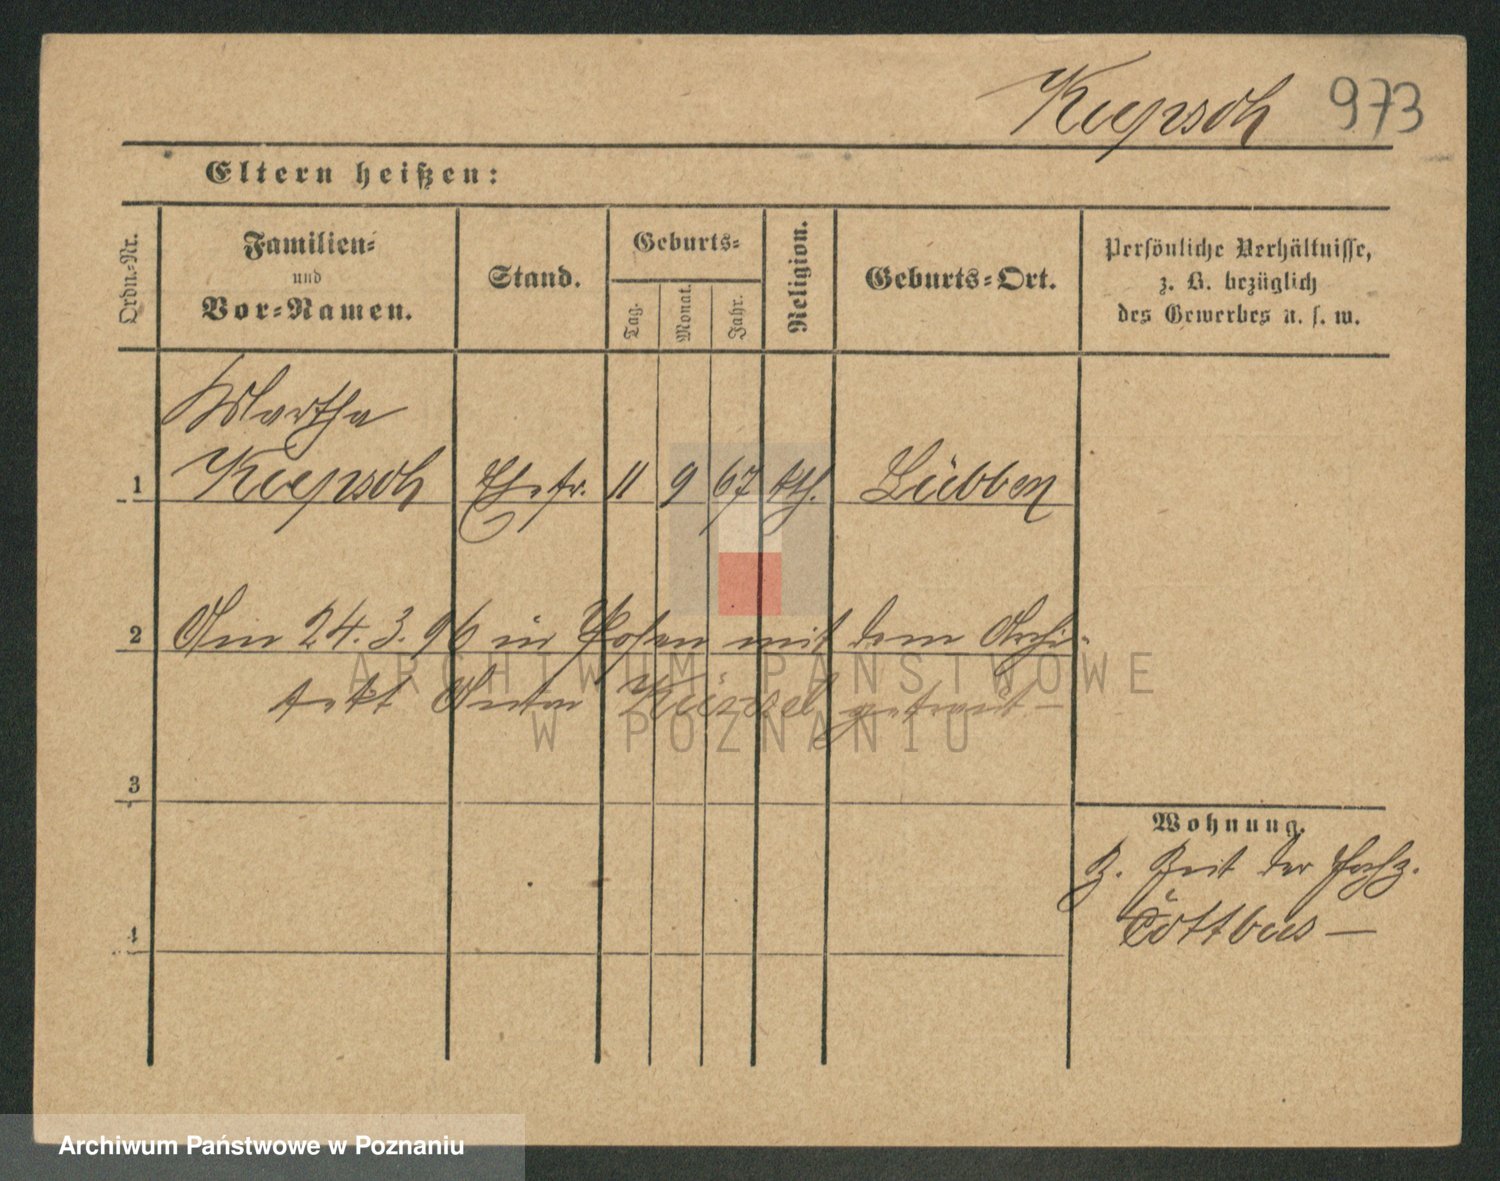 Kiepsch 973
Eltern heißen:
Ordn.-Nr.
Familien-
und
Vor-Namen.
Stand.
Geburts-
Tag.
Monat.
Jahr.
Religion.
Geburts-Ort.
Persönliche Verhältnisse,
z. B. bezüglich
des Gewerbes u. s. w.
Martha
1 Kiepsch Ehefr. 11 9 67 kth. Lübben
2 Am 24.3.96 in Posen mit dem Archi-
tekt Anton getraut —
3
4
Wohnung.
z. Zeit der Hochz.
Cottbus —
ARCHIWUM PAŃSTWOWE
W POZNANIU
Archiwum Państwowe w Poznaniu